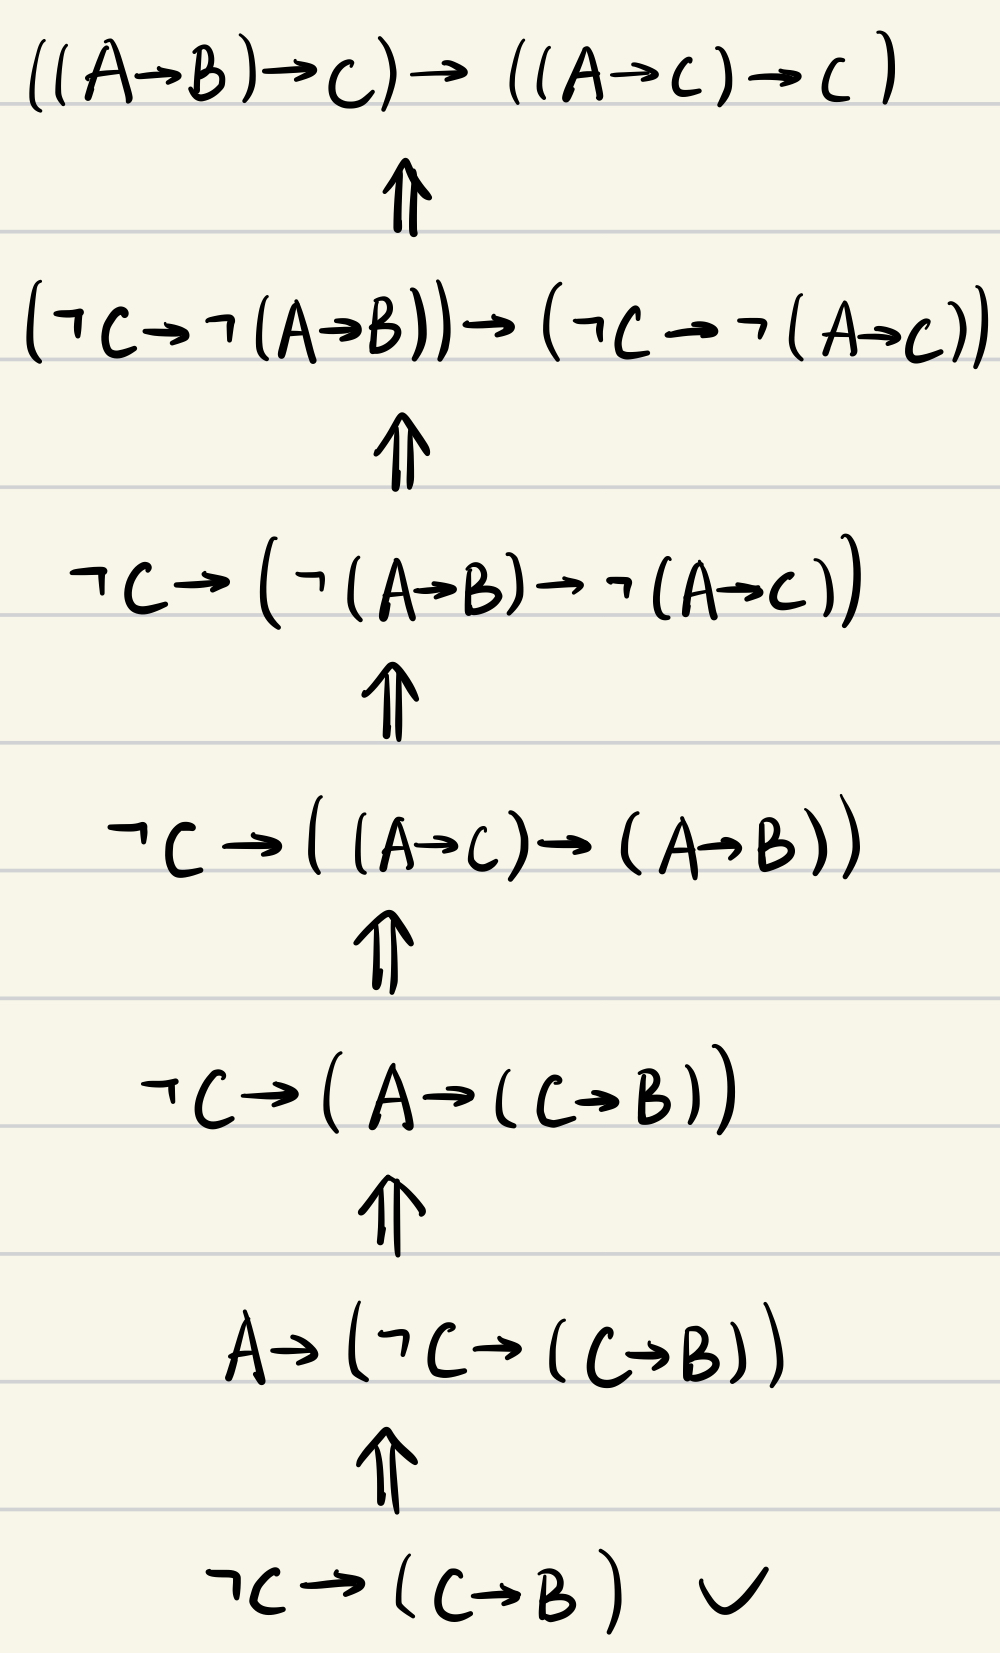 ((A→B)→C)→((A→C)→C)
⇑
(¬C→¬(A→B))→(¬C→¬(A→C))
⇑
¬C→(¬(A→B)→¬(A→C))
⇑
¬C→((A→C)→(A→B))
⇑
¬C→(A→(C→B))
⇑
A→(¬C→(C→B))
⇑
¬C→(C→B) ✓